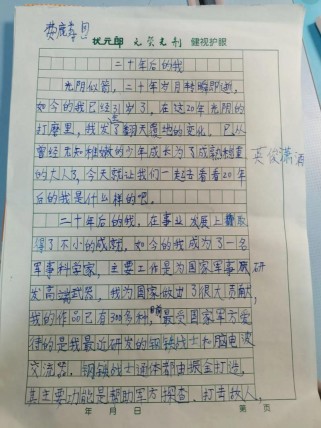 状元郎 无荧光剂 健视护眼
二十年后的我
光阴似箭，二十年岁月转瞬即逝，
如今的我已经31岁了，在这20年光阴的
打磨里，我发生翻天覆地的变化，已从
曾经无知稚嫩的少年成长为了成熟稳重
的大人了，今天就让我们一起去看看20年
后的我是什么样的吧。
英俊潇洒
二十年后的我，在事业发展上取
得了不小的成就，如今的我成为了一名
军事科学家，主要工作是为国家军事研
发高端武器，我为国家做出了很大贡献，
我的作品已有300多种，最受国家军方爱
待的是我最近研发的钢铁战士和脑电波
交流器。钢铁战士通体都由振金打造，
其主要功能是帮助军方探查、打击敌人，
年 月 日
第 页